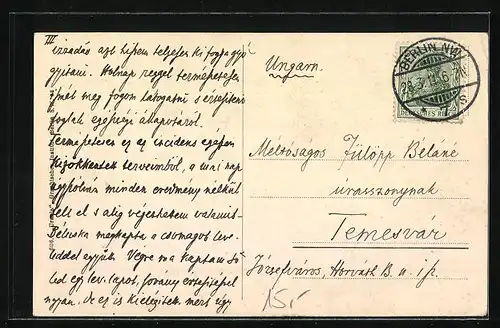 III
izzadás azt hiszem teljesen ki fogja gyó
gyitani. Holnap reggel természetesen
ismét meg fogom látogatni s értesíteni
foglak egészségi állapotáról.
Természetesen ez az incidens egészen
kizökkentett terveimből, a mai nap
úgyszólván minden eredmény nélkül
telt el s alig végezhettem valamit.
megkapta a csomagot
együtt. Végre ma kaptam tő
led egy lev. lapot,
nyan. de ez is kielégített, mert úgy
Ungarn.
BERLIN NW
DEUTSCHES REICH
Méltóságos Fülöpp Béláné
úrasszonynak
Temesvár
Józsefváros, Horváth B. u. 
15.-